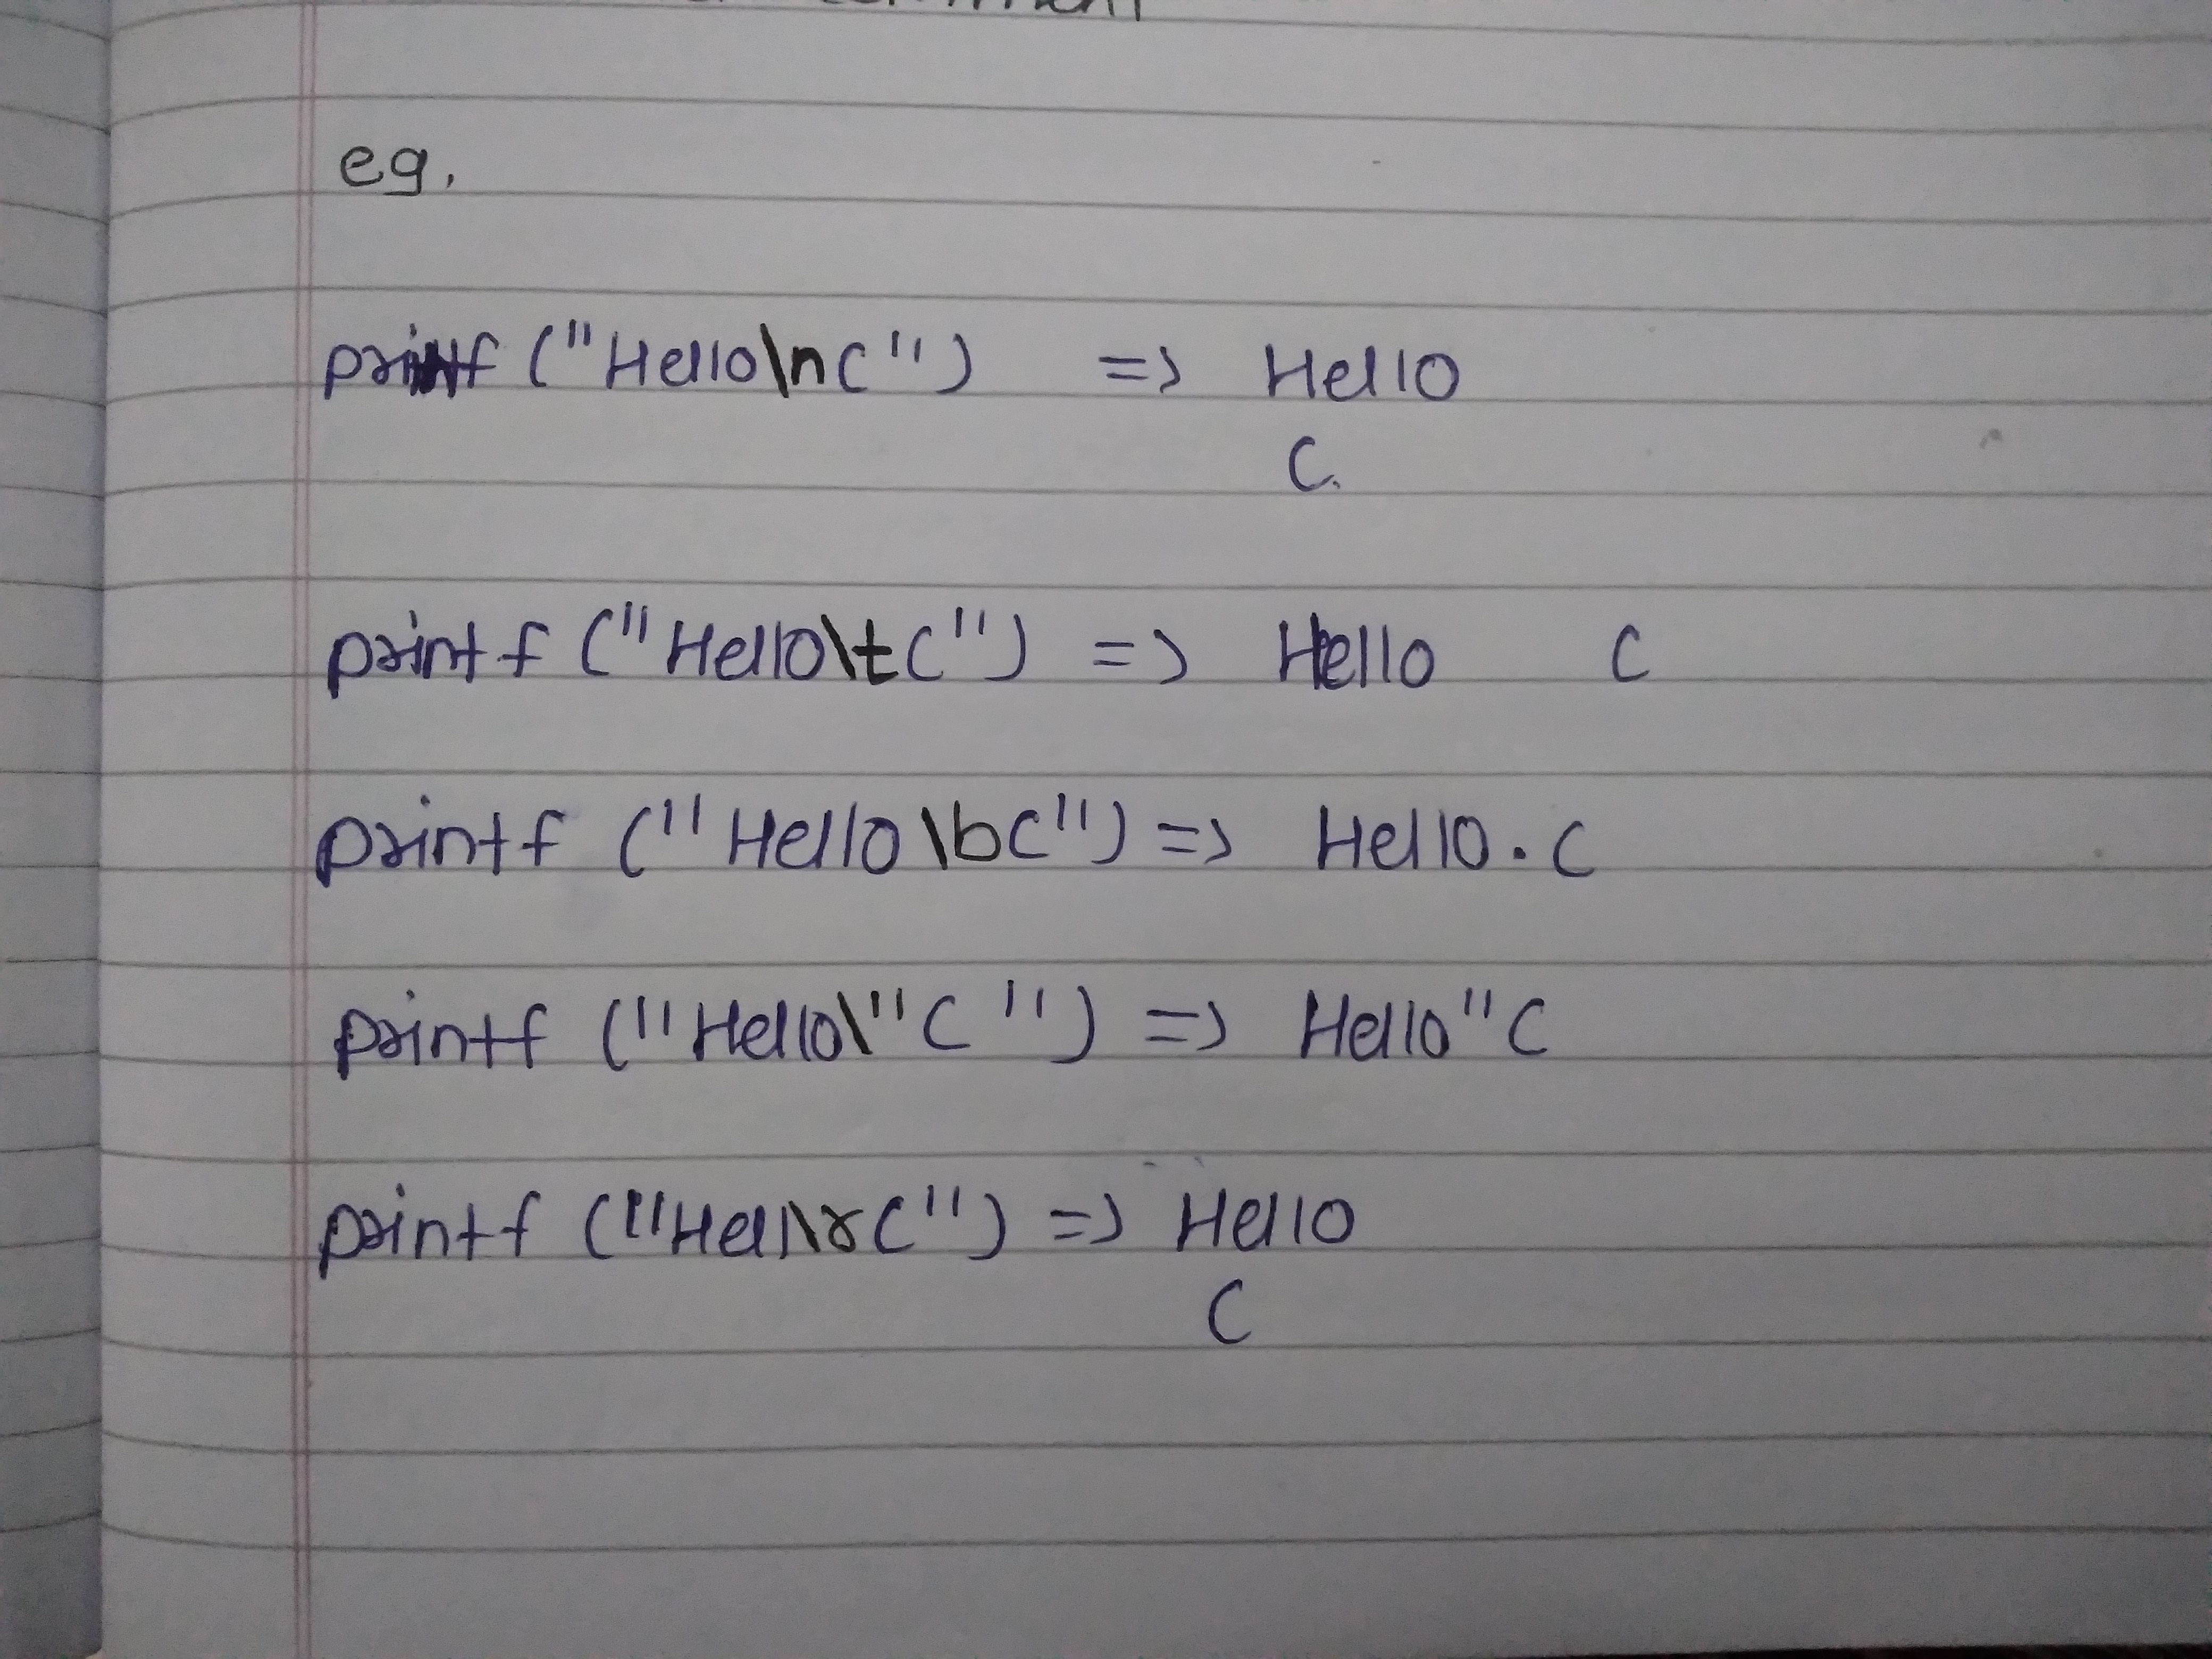 eg.
printf ("Hello\nC") => Hello
C.
printf ("Hello\tC") => Hello C
printf ("Hello \bC") => Hello. C
printf ("Hello\"C ") => Hello"C
printf ("Hell\rC") => Hello
C